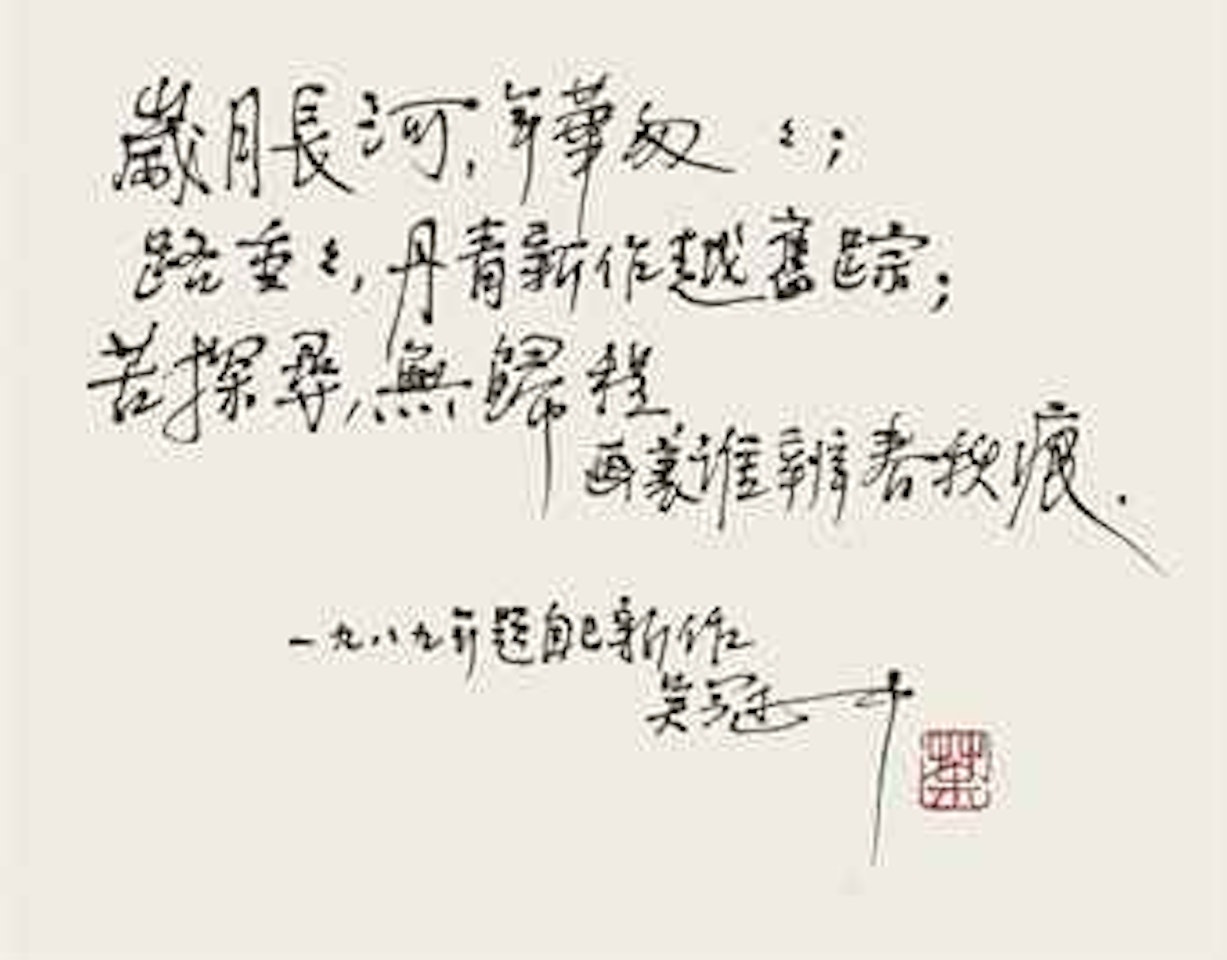 歲月長河，年華匆々；
路重々，丹青新作越舊踪；
苦探尋，無歸程，
画裏谁辨春秋痕．
一九八九年题自己新作
吴冠中
荼